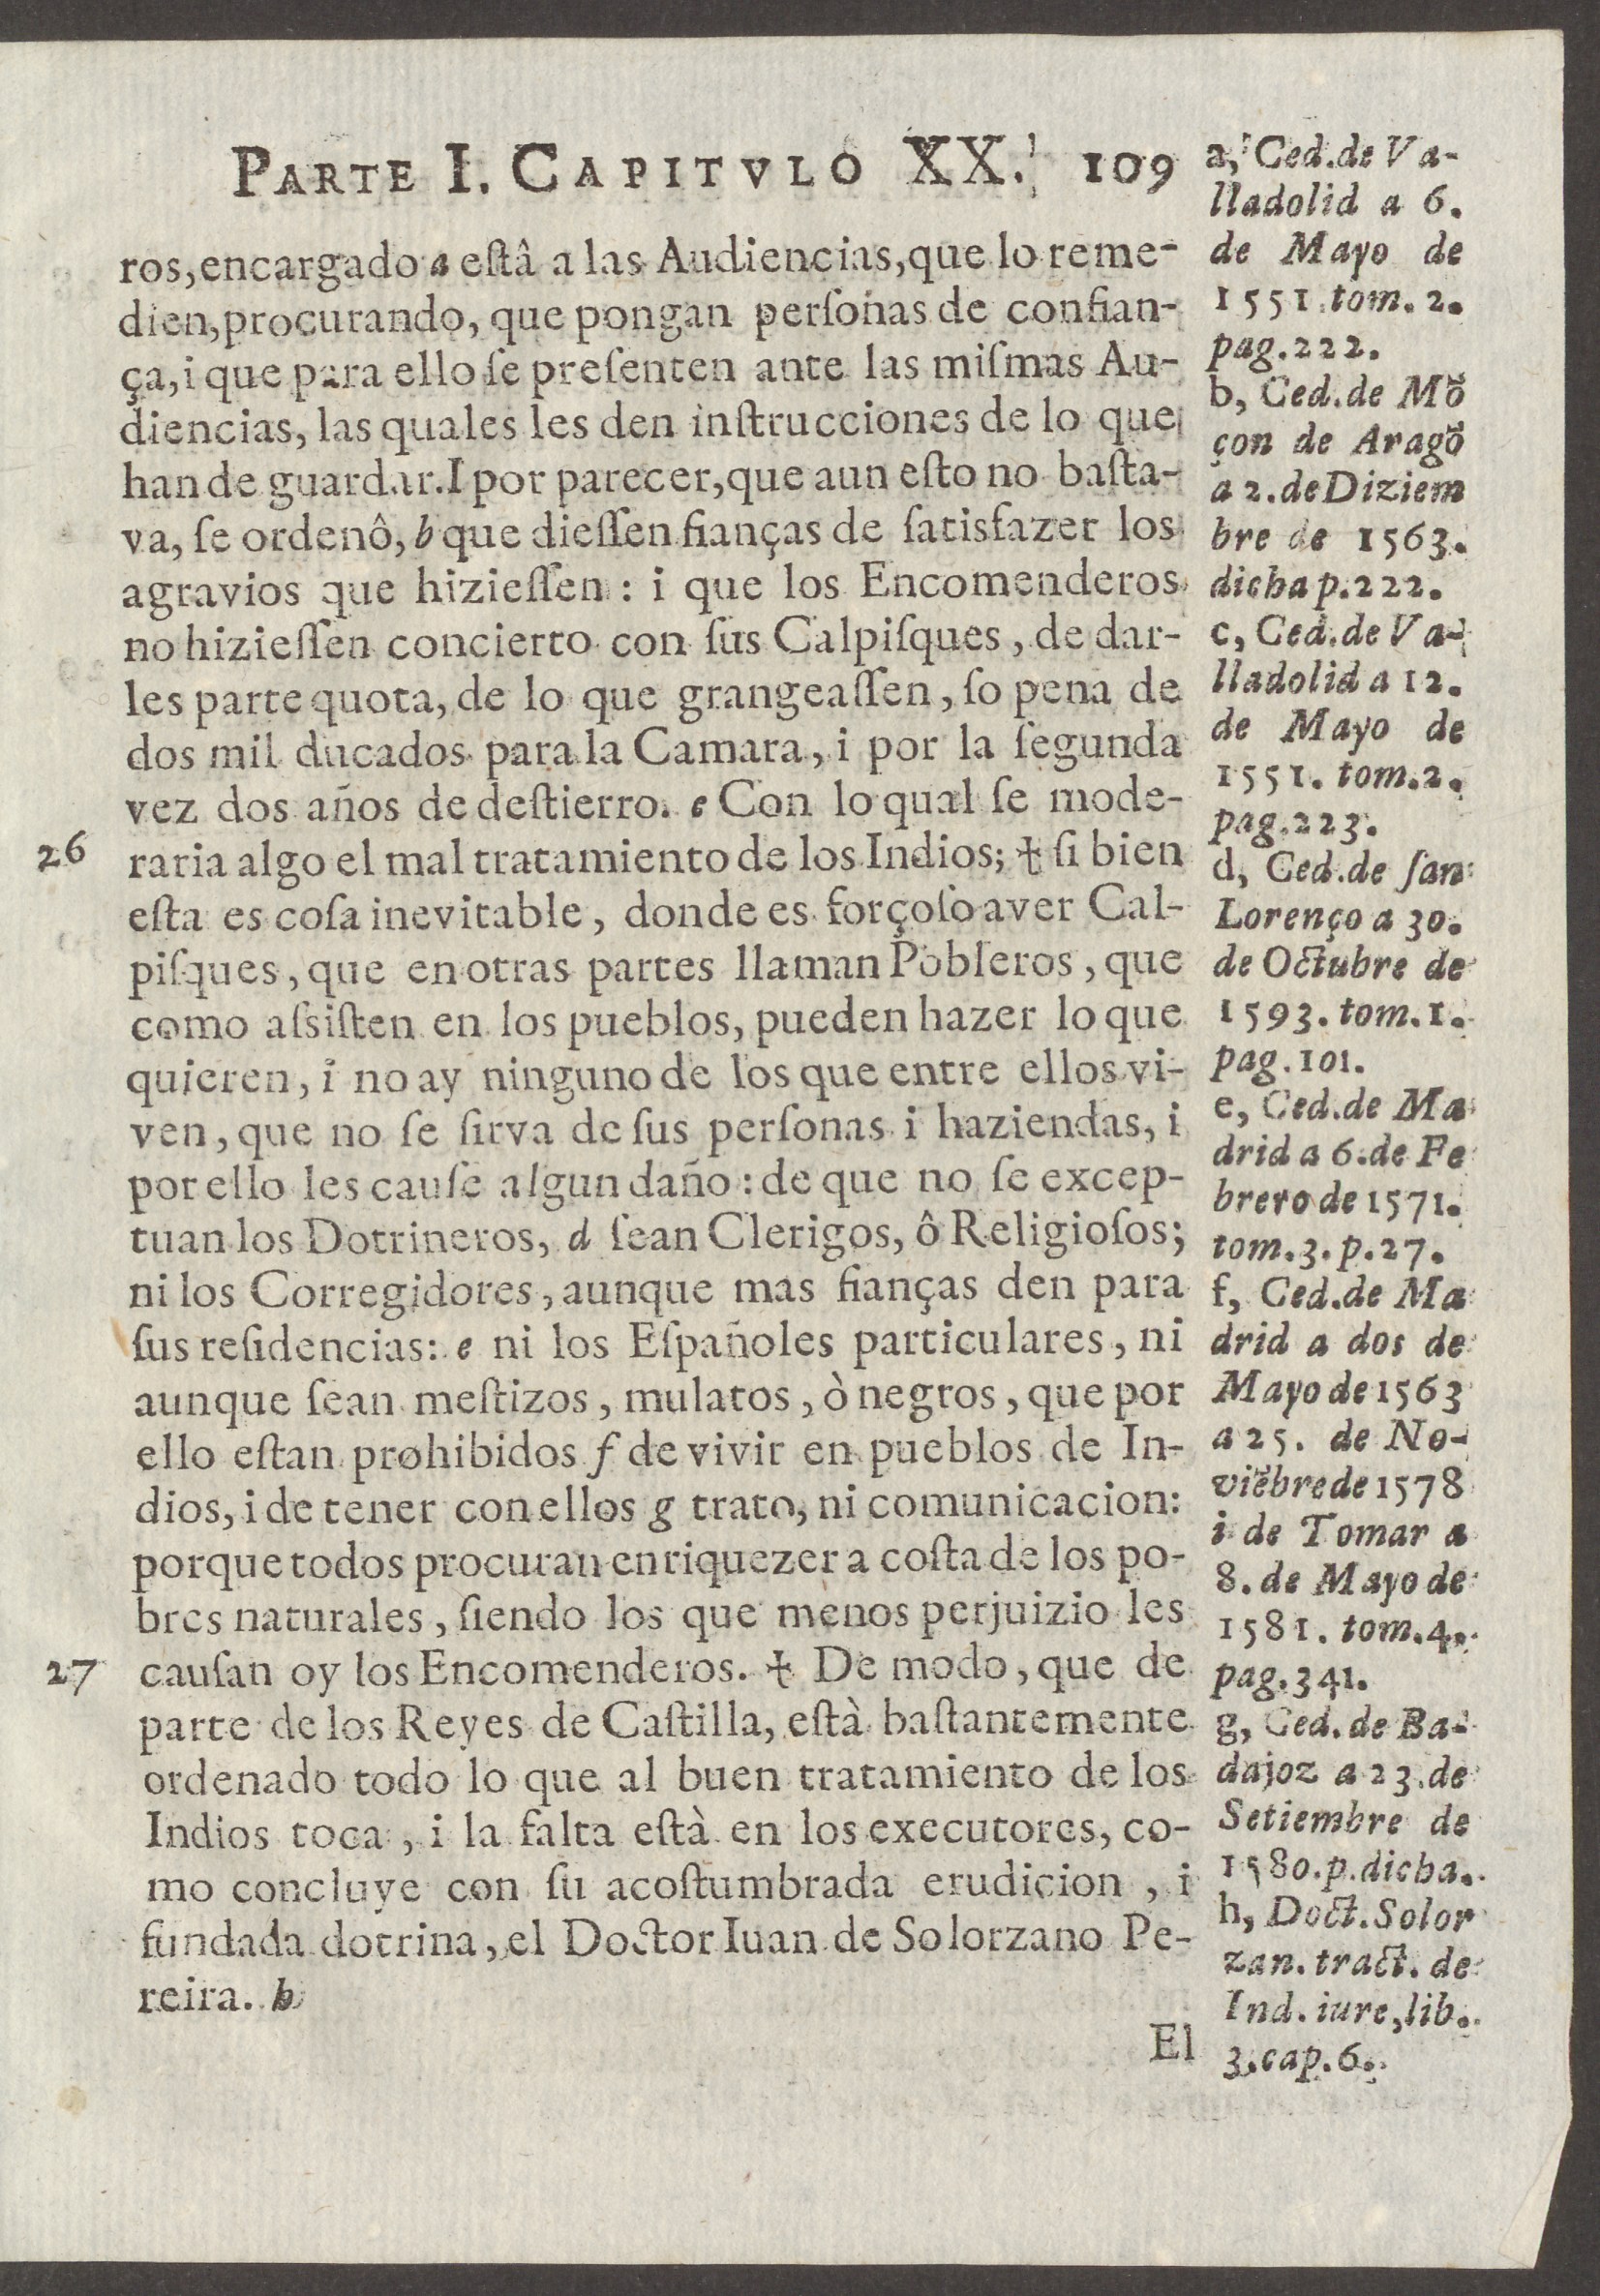 PARTE I. CAPITVLO XX. 109
ros, encargado a eſtâ a las Audiencias, que lo reme-
dien, procurando, que pongan perſonas de confian-
ça, i que para ello ſe preſenten ante las miſmas Au-
diencias, las quales les den inſtrucciones de lo que
han de guardar. I por parecer, que aun eſto no baſta-
va, ſe ordenô, b que dieſſen fianças de ſatisfazer los
agravios que hizieſſen : i que los Encomenderos
no hizieſſen concierto con ſus Calpiſques, de dar-
les parte quota, de lo que grangeaſſen, ſo pena de
dos mil ducados para la Camara, i por la ſegunda
vez dos años de deſtierro. c Con lo qual ſe mode-
26
raria algo el mal tratamiento de los Indios; ✝ ſi bien
eſta es coſa inevitable, donde es forçoſo aver Cal-
piſques, que en otras partes llaman Pobleros, que
como aſsiſten en los pueblos, pueden hazer lo que
quieren, i no ay ninguno de los que entre ellos vi-
ven, que no ſe ſirva de ſus perſonas i haziendas, i
por ello les cauſe algun daño : de que no ſe excep-
tuan los Dotrineros, d ſean Clerigos, ô Religioſos;
ni los Corregidores, aunque mas fianças den para
ſus reſidencias: e ni los Eſpañoles particulares, ni
aunque ſean meſtizos, mulatos, ò negros, que por
ello eſtan prohibidos f de vivir en pueblos de In-
dios, i de tener con ellos g trato, ni comunicacion:
porque todos procuran enriquezer a coſta de los po-
bres naturales, ſiendo los que menos perjuizio les
27
cauſan oy los Encomenderos. ✝ De modo, que de
parte de los Reyes de Caſtilla, eſtà baſtantemente
ordenado todo lo que al buen tratamiento de los
Indios toca, i la falta eſtà en los executores, co-
mo concluye con ſu acoſtumbrada erudicion, i
fundada dotrina, el Doctor Iuan de Solorzano Pe-
reira. h
El
a, Ced. de Va-
lladolid a 6.
de Mayo de
1551. tom. 2.
pag. 222.
b, Ced. de Mõ
çon de Aragõ
a 2. de Diziem
bre de 1563.
dicha p. 222.
c, Ced. de Va-
lladolid a 12.
de Mayo de
1551. tom. 2.
pag. 223.
d, Ced. de ſan
Lorenço a 30.
de Octubre de
1593. tom. 1.
pag. 101.
e, Ced. de Ma
drid a 6. de Fe
brero de 1571.
tom. 3. p. 27.
f, Ced. de Ma
drid a dos de
Mayo de 1563
a 25. de No-
viẽbre de 1578
i de Tomar a
8. de Mayo de
1581. tom. 4.
pag. 341.
g, Ced. de Ba-
dajoz a 23. de
Setiembre de
1580. p. dicha.
h, Doct. Solor
zan. tract. de
Ind. iure, lib.
3. cap. 6.